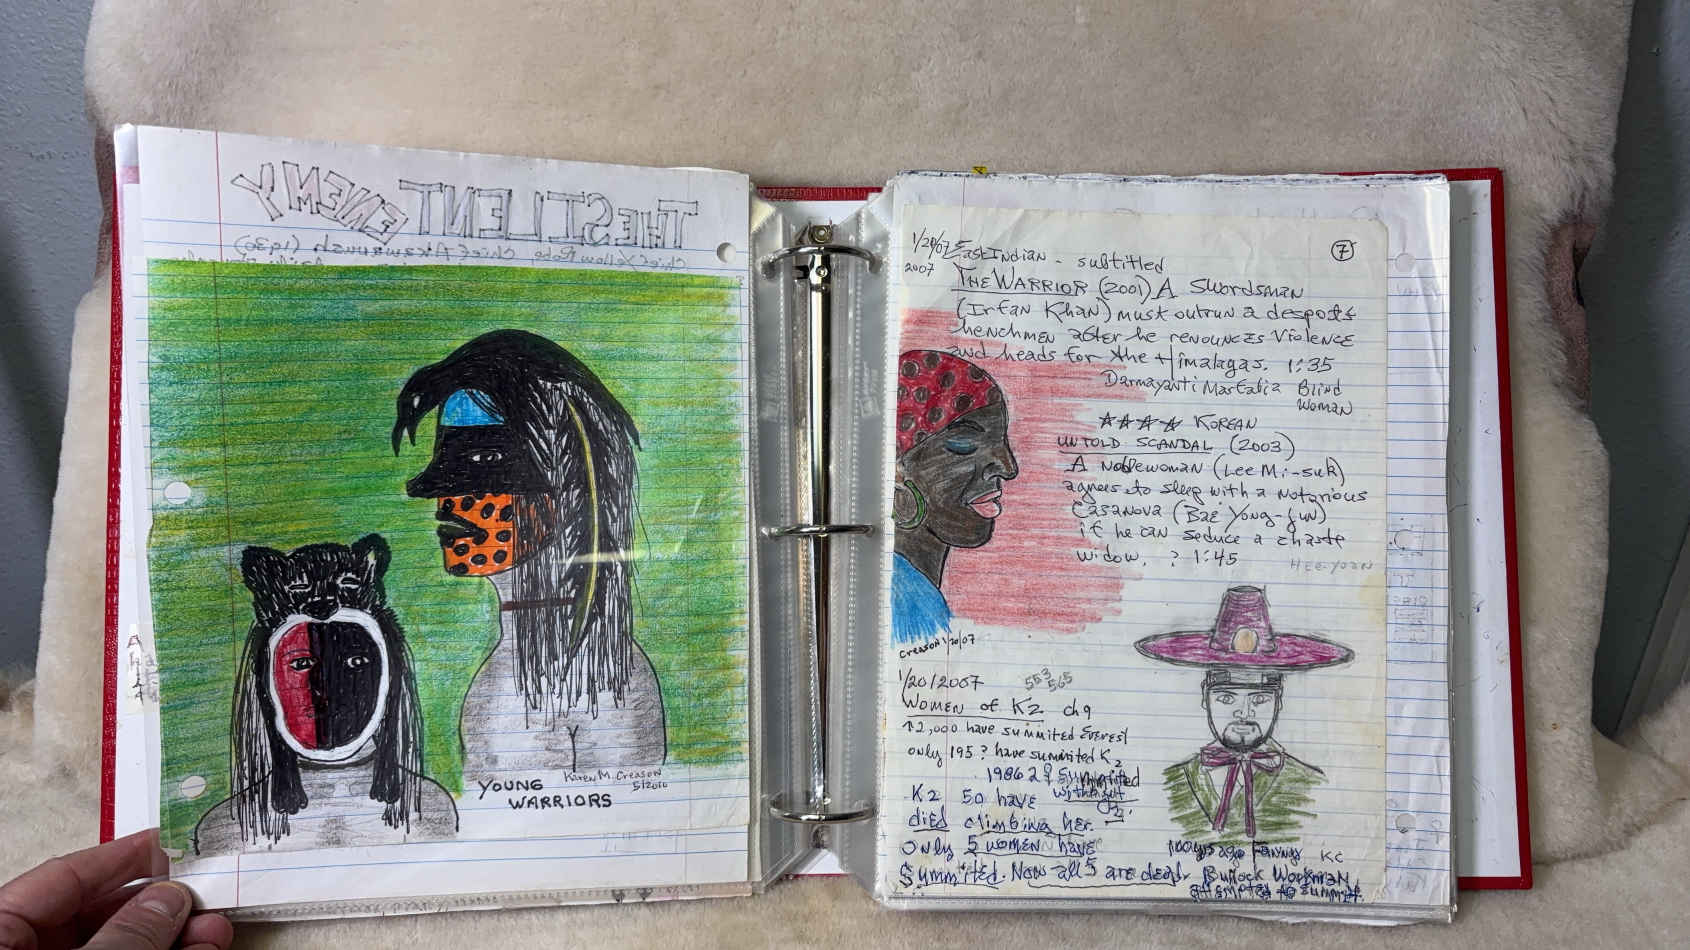 THE SILENT ENEMY
Chief Yellow Robe Chief Akawanush (1930)
YOUNG
WARRIORS
Karen M. Creason
5/2010
1/20/07 East Indian - subtitled
2007
7
THE WARRIOR (2001) A Swordsman
(Irfan Khan) must outrun a despots
henchmen after he renounces violence
and heads for the Himalagas. 1:35
Blind
Woman
☆☆☆☆ KOREAN
UNTOLD SCANDAL (2003)
A Noblewoman (Lee Mi-suk)
agrees to sleep with a notorious
Casanova (Bae Yong-jun)
if he can seduce a chaste
widow. ? 1:45
HEE-YOON
Creason 1/20/07
1/20/2007
553
565
Women of K2 ch 9
↑2,000 have summited Everest
only 195? have summited K2
1986 2♀ summited
without
O2.
K2 50 have
died climbing her.
Only 5 women have
Summited. Now all 5 are dead.
100 yrs ago Fanny
Bullock Workman
attempted to summit.